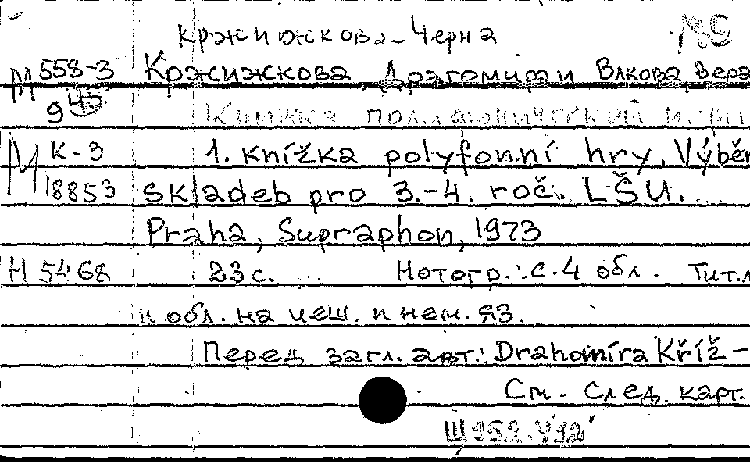 Кржижкова-Черна
М 558-3 Кржижкова, Драгомира и Влкова Вера
9 45 Книжка полифонической
М К-3 1. Knížka polyfonní hry. Výběr
18853 skladeb pro 3.-4. roč. LŠU.
Praha, Supraphon, 1973
Н 5468 23 с. Нотогр.: с. 4 обл. Тит. л.
и обл. на чеш. и нем. яз.
Перед загл. авт.: Drahomíra Kříž-
См. след. карт.